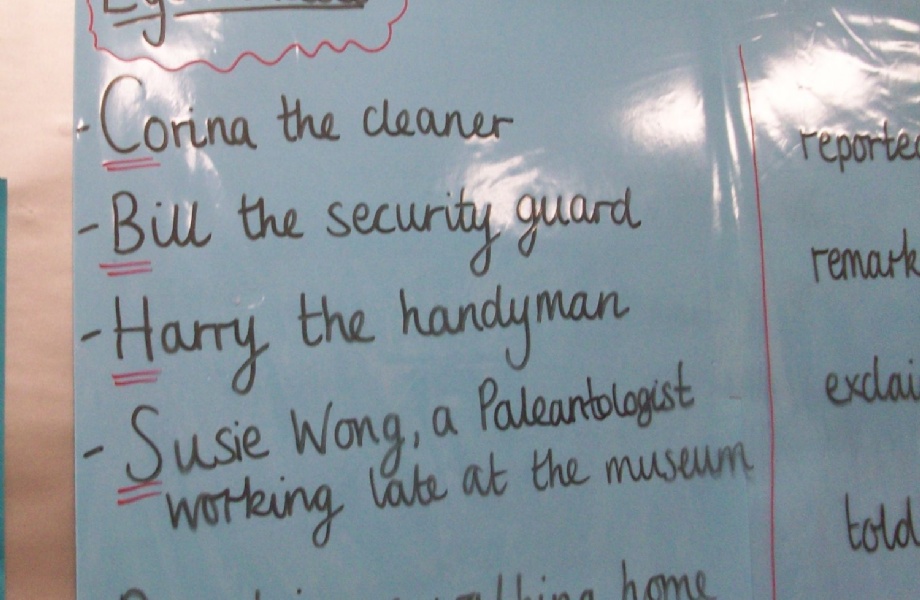 - Corina the cleaner
- Bill the security guard
- Harry the handyman
- Susie Wong, a Paleantologist
working late at the museum
home
reporte
remark
exclai
told